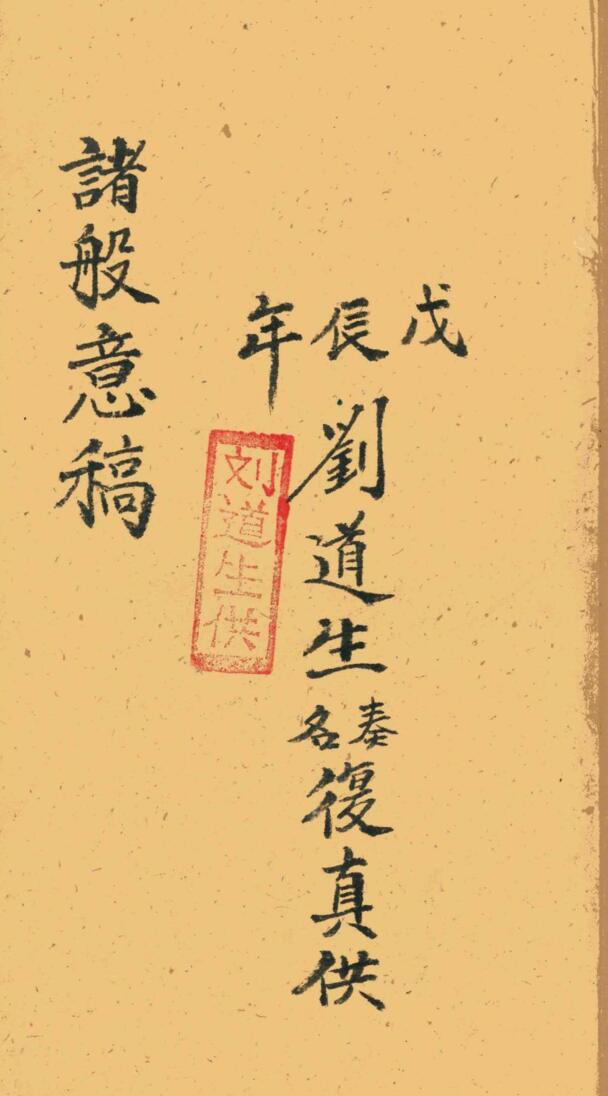 戊辰年
劉道生奏名復真供
刘道生供
諸般意稿